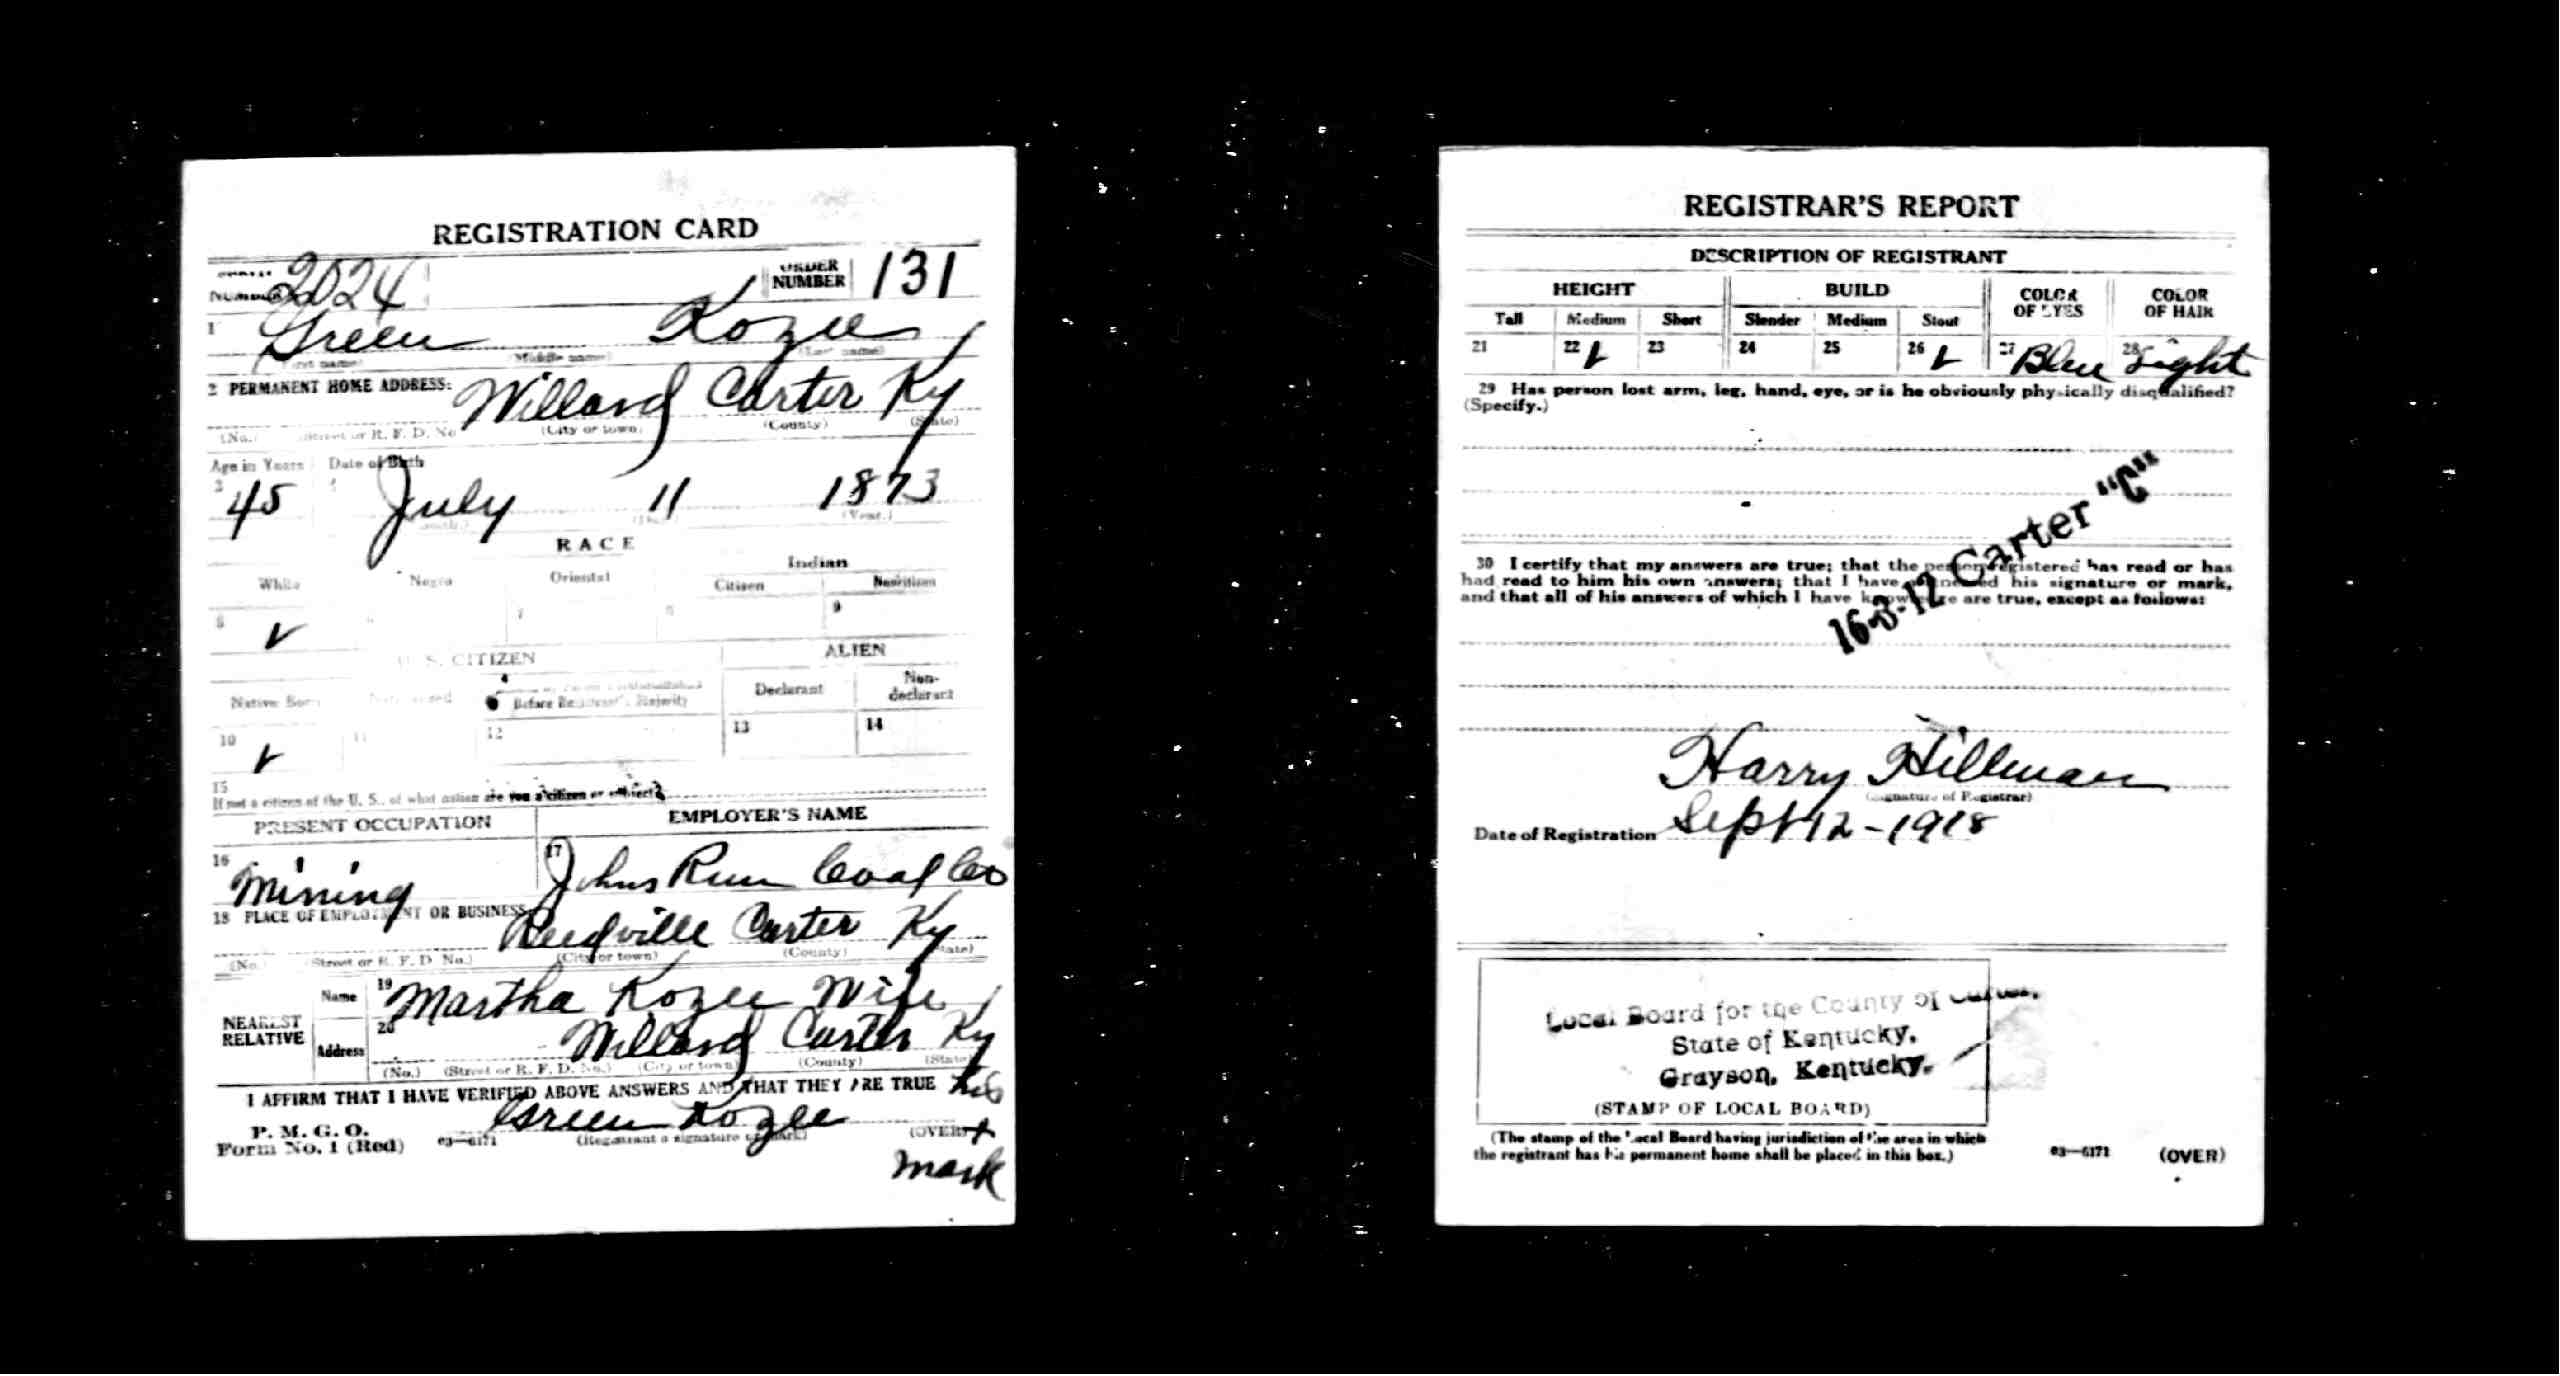 REGISTRATION CARD
NUMBER 2024 ORDER NUMBER 131
1 Green Kozee
(First name) (Middle name) (Last name)
2 PERMANENT HOME ADDRESS:
Willard Carter Ky
(No.) (Street or R. F. D. No (City or town) (County) (State)
Age in Years Date of Birth
3 45 July 11 1873
(Day.) (Year.)
RACE
White Negro Oriental Indian
Citizen Noncitizen
5 6 7 8 9
U. S. CITIZEN ALIEN
Native Born Before Registrant's Majority Declarant Non-declarant
10 11 12 13 14
15
If not a citizen of the U. S., of what nation are you a citizen or subject?
PRESENT OCCUPATION EMPLOYER'S NAME
16 Mining 17 Johns Run Coal Co
18 PLACE OF EMPLOYMENT OR BUSINESS:
Reedville Carter Ky
(No.) (Street or R. F. D. No.) (City or town) (County) (State)
NEAREST RELATIVE
Name 19 Martha Kozee Wife
Address 20 Willard Carter Ky
(No.) (Street or R. F. D. No.) (City or town) (County) (State)
I AFFIRM THAT I HAVE VERIFIED ABOVE ANSWERS AND THAT THEY ARE TRUE his
Green Kozee
P. M. G. O.
Form No. 1 (Red) 03—6171 (Registrant's signature or mark) (OVER) +
mark
REGISTRAR'S REPORT
DESCRIPTION OF REGISTRANT
HEIGHT BUILD COLOR OF EYES COLOR OF HAIR
Tall Medium Short Slender Medium Stout
21 22 23 24 25 26 27 Blue 28 Light
29 Has person lost arm, leg, hand, eye, or is he obviously physically disqualified?
(Specify.)
16-3-12 Carter "C"
30 I certify that my answers are true; that the person registered has read or has
had read to him his own answers; that I have witnessed his signature or mark,
and that all of his answers of which I have knowledge are true, except as follows:
Harry Hillman
(Signature of Registrar)
Date of Registration Sept 12-1918
Local Board for the County of Carter,
State of Kentucky,
Grayson, Kentucky.
(STAMP OF LOCAL BOARD)
(The stamp of the Local Board having jurisdiction of the area in which
the registrant has his permanent home shall be placed in this box.)
03—6171 (OVER)